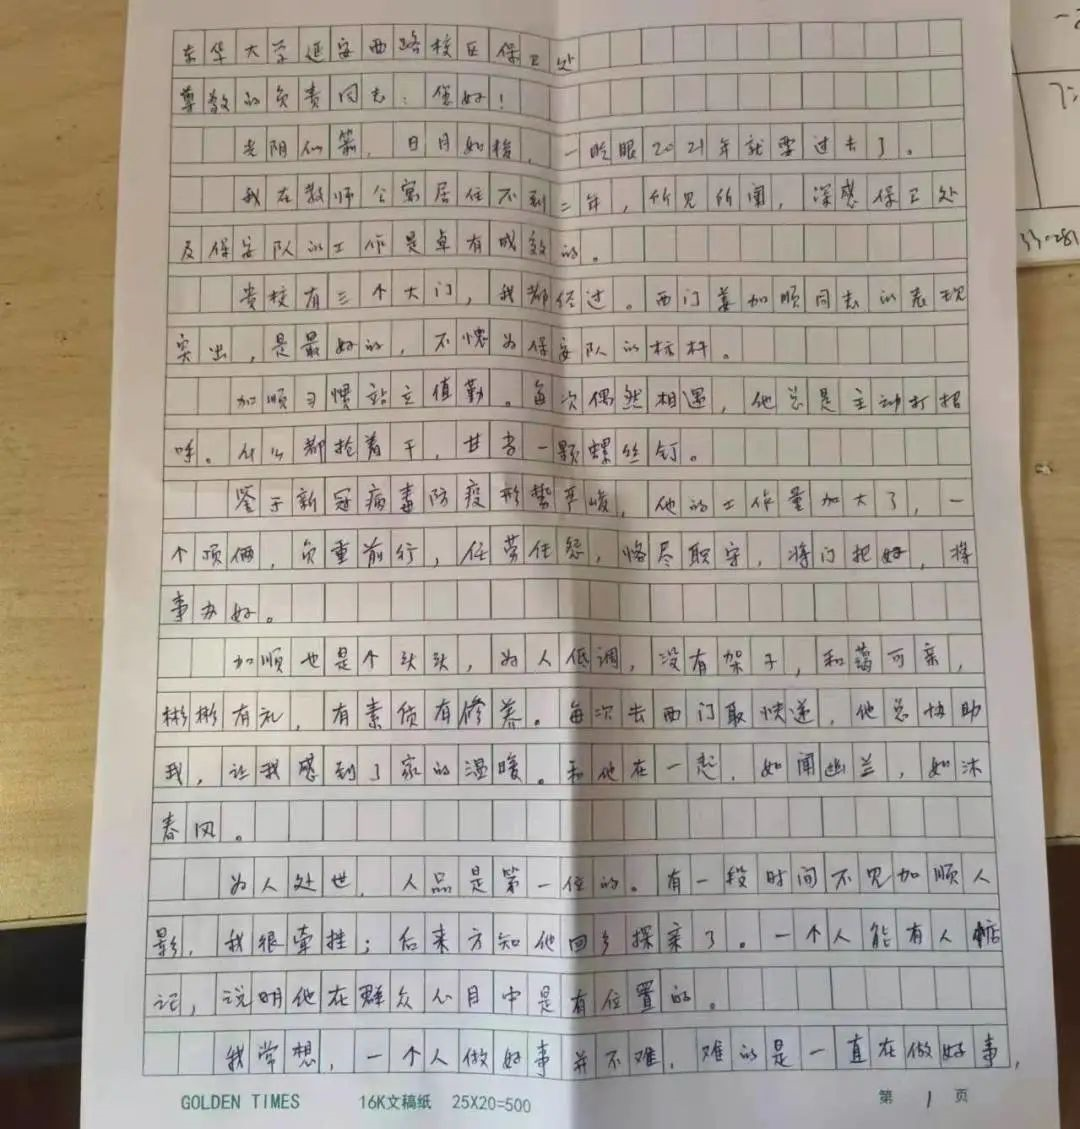 东华大学延安西路校区保卫处
尊敬的负责同志：您好！
光阴似箭，日月如梭，一眨眼2021年就要过去了。
我在教师公寓居住不到二年，所见所闻，深感保卫处
及保安队的工作是卓有成效的。
贵校有三个大门，我都经过。西门姜加顺同志的表现
突出，是最好的，不愧为保安队的标杆。
加顺习惯站立值勤。每次偶然相遇，他总是主动打招
呼。什么都抢着干，甘当一颗螺丝钉。
鉴于新冠病毒防疫形势严峻，他的工作量加大了，一
个顶俩，负重前行，任劳任怨，恪尽职守，将门把好，将
事办好。
加顺也是个头头，为人低调，没有架子，和蔼可亲，
彬彬有礼，有素质有修养。每次去西门取快递，他总协助
我，让我感到了家的温暖。和他在一起，如闻幽兰，如沐
春风。
为人处世，人品是第一位的。有一段时间不见加顺人
影，我很牵挂；后来方知他回乡探亲了。一个人能有人惦
记，说明他在群众心目中是有位置的。
我常想，一个人做好事并不难，难的是一直在做好事，
GOLDEN TIMES 16K文稿纸 25X20=500 第 1 页